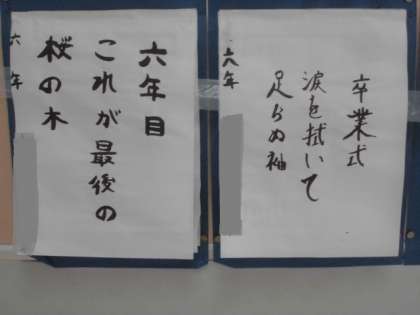 卒業式
涙を拭いて
足らぬ袖
六年
六年目
これが最後の
桜の木
六年